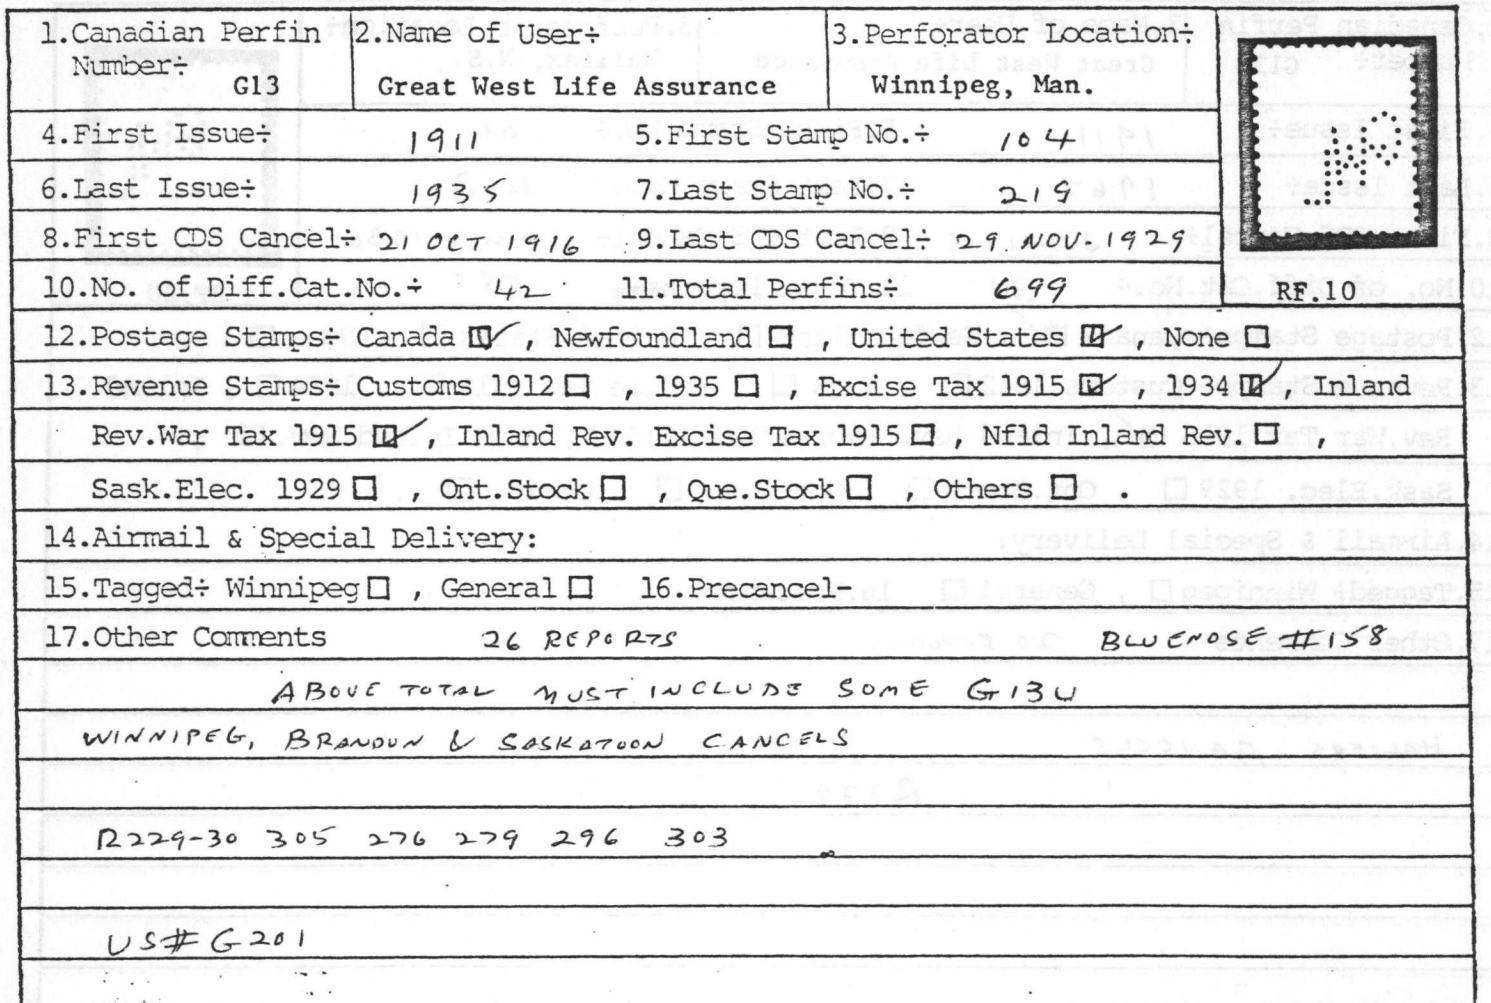 1.Canadian Perfin Number÷ G13
2.Name of User÷ Great West Life Assurance
3.Perforator Location÷ Winnipeg, Man.
4.First Issue÷ 1911 5.First Stamp No.÷ 104
6.Last Issue÷ 1935 7.Last Stamp No.÷ 219
8.First CDS Cancel÷ 21 OCT 1916 9.Last CDS Cancel÷ 29.NOV-1929
10.No. of Diff.Cat.No.÷ 42 11.Total Perfins÷ 699
RF.10
12.Postage Stamps÷ Canada ☑, Newfoundland ☐, United States ☑, None ☐
13.Revenue Stamps÷ Customs 1912 ☐, 1935 ☐, Excise Tax 1915 ☑, 1934 ☑, Inland
Rev.War Tax 1915 ☑, Inland Rev. Excise Tax 1915 ☐, Nfld Inland Rev. ☐,
Sask.Elec. 1929 ☐, Ont.Stock ☐, Que.Stock ☐, Others ☐.
14.Airmail & Special Delivery:
15.Tagged÷ Winnipeg ☐, General ☐ 16.Precancel-
17.Other Comments 26 REPORTS BLUENOSE #158
ABOVE TOTAL MUST INCLUDE SOME G13U
WINNIPEG, BRANDON & SASKATOON CANCELS
R229-30 305 276 279 296 303
US# G201